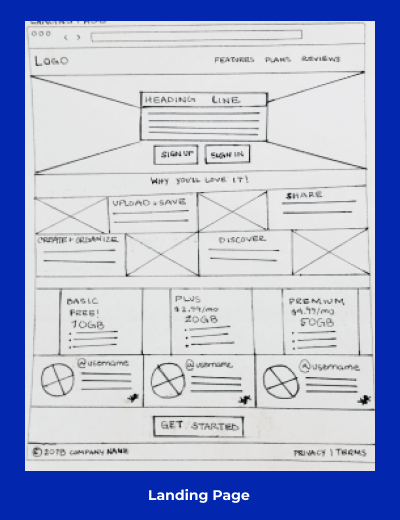 LANDING PAGE
LOGO FEATURES PLANS REVIEWS
HEADING LINE
SIGN UP SIGN IN
WHY YOU'LL LOVE IT!
UPLOAD + SAVE SHARE
CREATE + ORGANIZE DISCOVER
BASIC PLUS PREMIUM
FREE! $2.99/mo $4.99/mo
10GB 20GB 50GB
@username @username @username
GET STARTED
© 2018 COMPANY NAME PRIVACY | TERMS
Landing Page